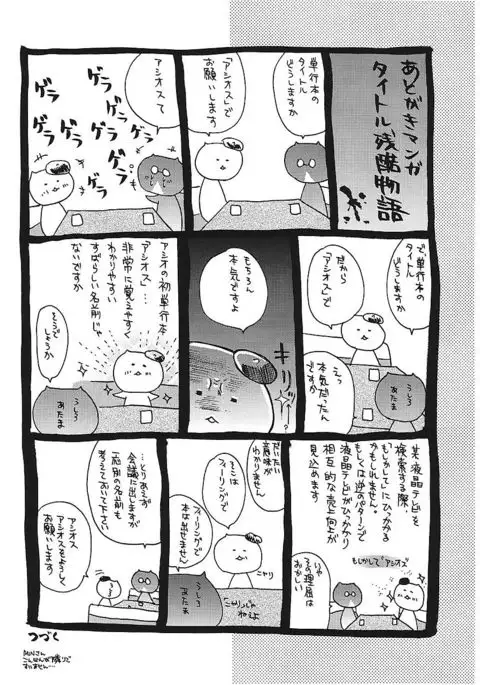 あとがきマンガ
タイトル残酷物語
単行本の
タイトル
どうしますか
「アシオス」で
お願いします
アシオスて
ゲラ
ゲラ
ゲラ
ゲラ
ゲラ
ゲラ
で、単行本の
タイトル
どうしますか
だから
「アシオス」で
えっ
本気だったん
ですか
うしろ
あたま
もちろん
本気ですよ
キリッ
アシオの初単行本
アシオス…
非常に覚えやすく
わかりやすい
すばらしい名前じゃ
ないですか
そうで
しょうか
うしろ
あたま
某液晶テレビを
検索する際、
「もしかして」にひっかかる
かもしれません。
もしくは逆のパターンで
液晶テレビがひっかかり
相互的な売上向上が
見込めます
もしかして"アシオス"
いや
その理屈は
おかしい
だいたい
意味が
わかりません
そこは
フィーリングで
フィーリングで
本は出せません
ニヤリ
うしろ
あたま
ニヤリじゃ
ねぇよ
…とりあえず
会議に出しますが
一応別の名前も
考えておいて下さい
アシオス
アシオスをよろしく
お願いします
つづく